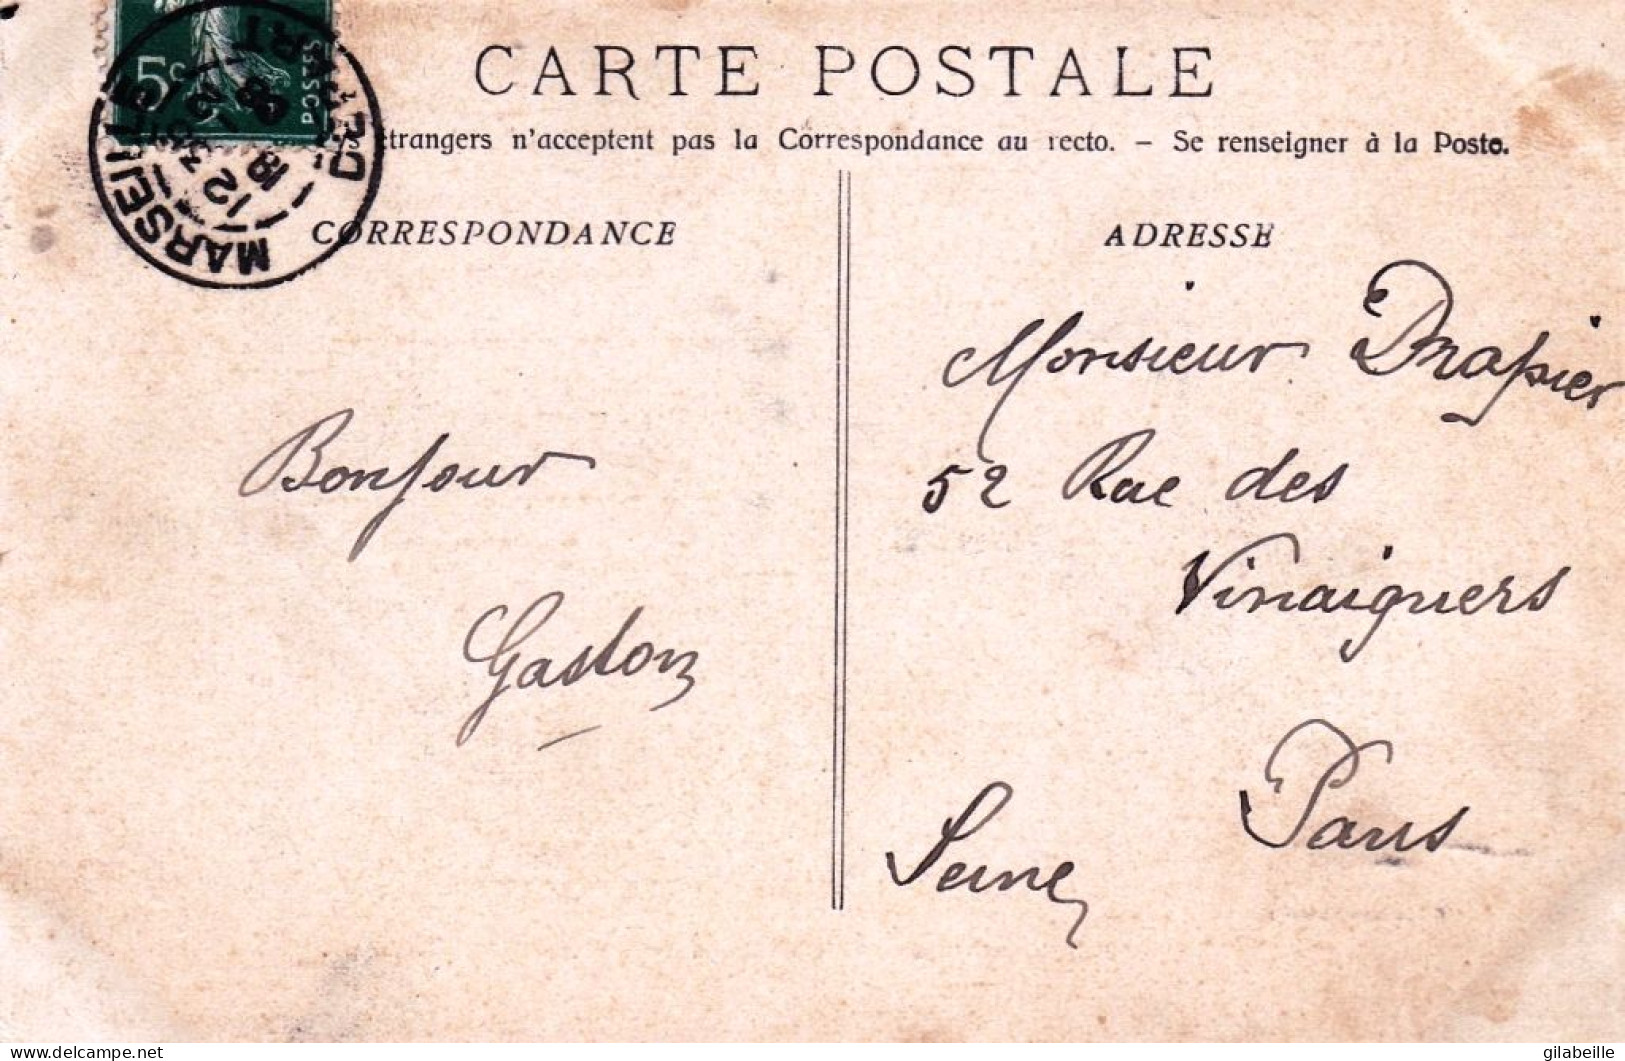 5c
POSTES
MARSEILLE
DÉPART
12 30
18
08
CARTE POSTALE
étrangers n'acceptent pas la Correspondance au recto. – Se renseigner à la Poste.
CORRESPONDANCE
ADRESSE
Monsieur Drapier
52 Rue des
Vinaigners
Paris
Seine
Bonjour
Gaston
www.delcampe.net
gilabeille